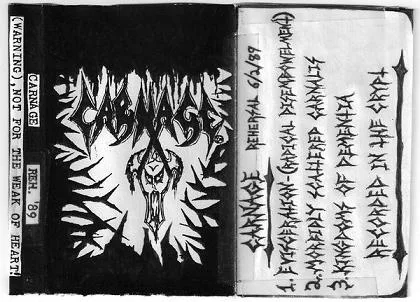 (WARNING), NOT FOR THE WEAK OF HEART!
CARNAGE
REH. '89
CARNAGE
CARNAGE REHERSAL 6/2/89
1. EVISCERATION-(RADICAL DISEMBOWELMENT)
2. MORBIDLY SCATTERED CARNALIS
3. KINGDOMS OF DEMENTIA
RECORDED IN THE CRYPT